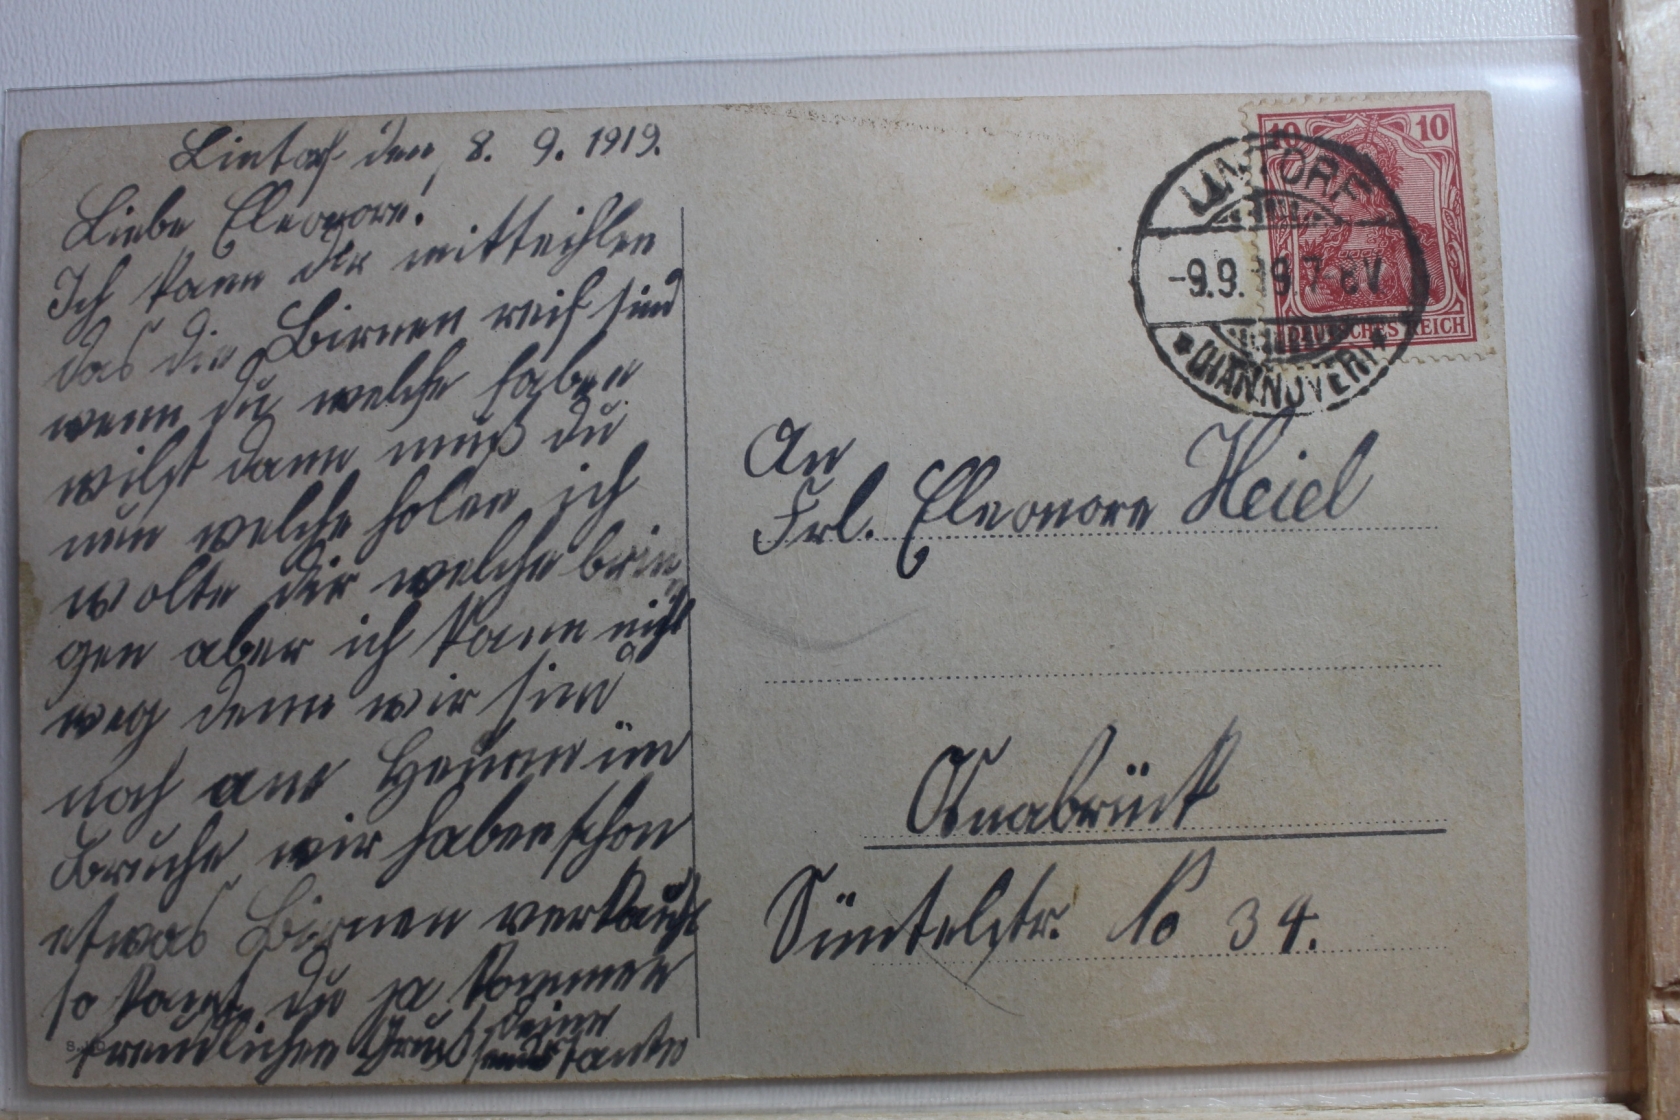 Lintorf den 8. 9. 1919.
Liebe Eleonore!
Ich kann dir mitteihlen
das die Birnen reif sind
wenn du welche haben
wilst dann muß du
nun welche holen ich
wolte dir welche brin
gen aber ich kann nicht
weg denn wir sind
noch am Heuen im
Bruche wir haben schon
etwas Birnen verkauft
so kanst du ja kommen
freundlichen Gruß deine
Tante
10 10
LINTORF
-9.9.19.7-8V
(HANNOVER)
DEUTSCHES REICH
An
Frl. Eleonore Heiel
Osnabrück
Süntelstr. No 34.